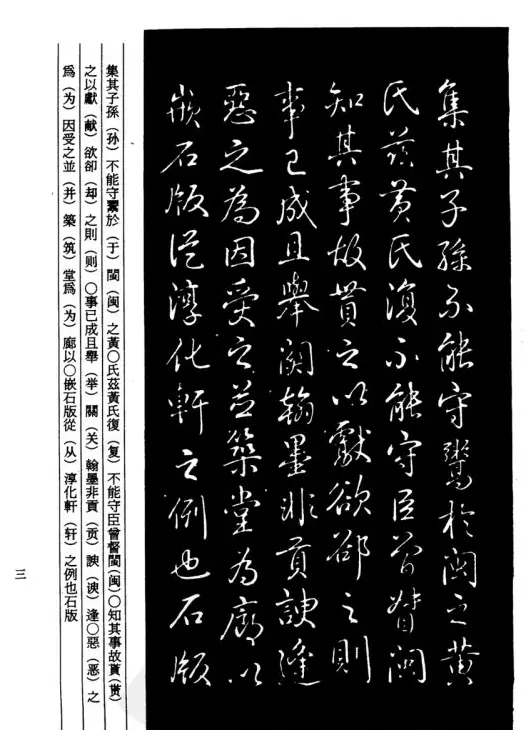 集其子孫不能守鬻於閩之黄
氏茲黄氏復不能守臣曾督閩
知其事故貰之以獻欲卻之則
事已成且舉關翰墨非貢諛逢
惡之為因受之並築堂為廊以
嵌石版從淳化軒之例也石版
集其子孫（孙）不能守鬻於（于）閩（闽）之黃○氏茲黃氏復（复）不能守臣曾督閩（闽）○知其事故貰（贳）
之以獻（献）欲卻（却）之則（则）○事已成且舉（举）關（关）翰墨非貢（贡）諛（谀）逢○惡（恶）之
爲（为）因受之並（并）築（筑）堂爲（为）廊以○嵌石版從（从）淳化軒（轩）之例也石版
三